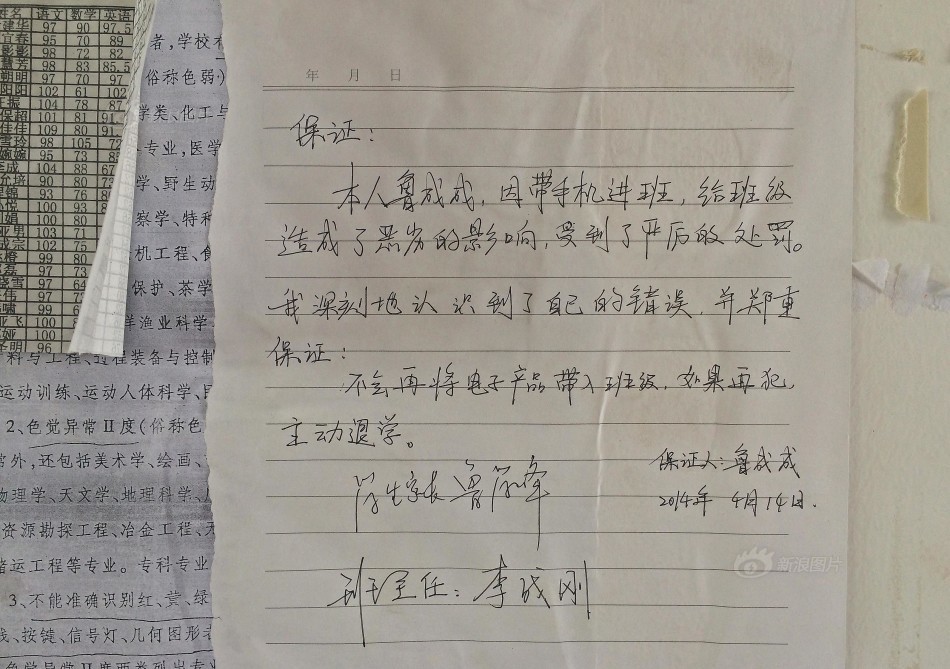 姓名 语文 数学 英语
建华 97 90 97.5
宜春 95 70 89
彭彭 98 72 82
慧芳 98 83 85.5
朔明 97 70 97
阳阳 102 61 102
振 104 78 87
保超 101 81 91.
佳佳 109 80 91.
雪玲 98 105 72
婉婉 95 73 8
成 104 88 67
培 90 80 73
93 76 8
悦 100 93 8
娟 100 80
亚男 103 71
成宗 102 75
橙 99 80
磊 97 73
晓雪 97 64
伟 97 72
啸 99 6
亚飞 100
娅 100
明 96
者,学校有
俗称色弱)
学类、化工与
专业,医学
学、野生动
察学、特种
机工程、食
保护、茶学
洋渔业科学
料与工程、过程装备与控制
运动训练、运动人体科学、
2、色觉异常Ⅱ度(俗称色
常外,还包括美术学、绘画、
物理学、天文学、地理科学、
资源勘探工程、冶金工程、无
储运工程等专业。专科专业
3、不能准确识别红、黄、绿
线、按键、信号灯、几何图形者
色觉异常Ⅱ度两类列出专业
年 月 日
保证:
本人鲁成成,因带手机进班,给班级
造成了恶劣的影响,受到了严厉的处罚。
我深刻地认识到了自己的错误,并郑重
保证:
不会再将电子产品带入班级,如果再犯,
主动退学。
保证人:鲁成成
2014年 4月14日.
学生家长 鲁
班主任:李成刚
新浪图片